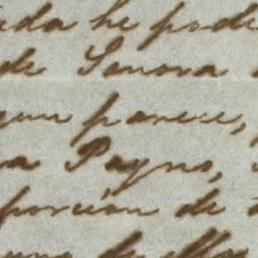 ada he pode
de Sonora
gun parece,
a Payno,
porcion de
uno de ellos